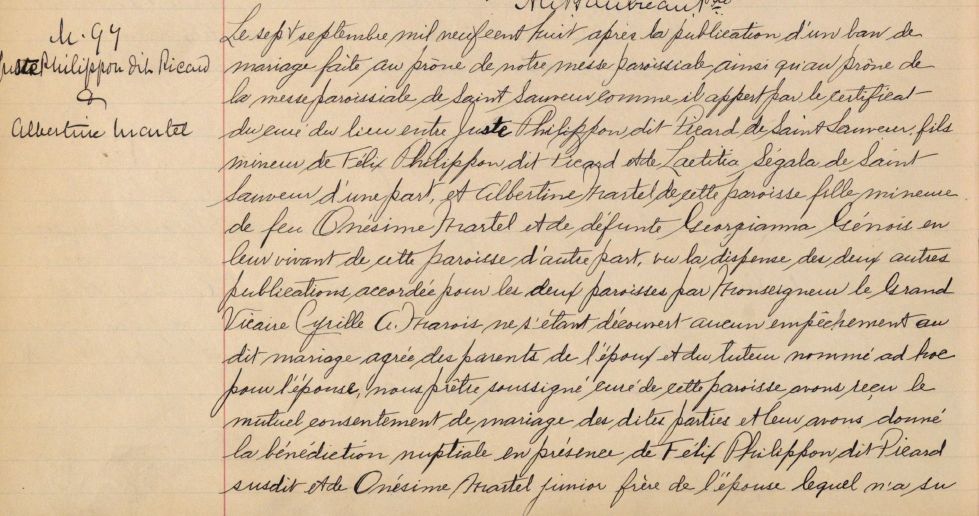 M. 94
Juste Philippon dit Picard
&
Albertine Martel
Le sept septembre mil neuf cent huit après la publication d'un ban de
mariage faite au prône de notre messe paroissiale ainsi qu'au prône de
la messe paroissiale de Saint Sauveur comme il appert par le certificat
du curé du lieu entre Juste Philippon dit Picard de Saint Sauveur, fils
mineur de Félix Philippon dit Picard et de Laetitia Ségala de Saint
Sauveur d'une part, et Albertine Martel de cette paroisse fille mineure
de feu Onésime Martel et de défunte Georgianna Génois en
leur vivant de cette paroisse d'autre part, vu la dispense des deux autres
publications accordée pour les deux paroisses par Monseigneur le Grand
Vicaire Cyrille A. Marois ne s'étant découvert aucun empêchement au
dit mariage agrée des parents de l'époux et du tuteur nommé ad hoc
pour l'épouse, nous prêtre soussigné curé de cette paroisse avons reçu le
mutuel consentement de mariage des dites parties et leur avons donné
la bénédiction nuptiale en présence de Félix Philippon dit Picard
susdit et de Onésime Martel junior frère de l'épouse lequel n'a su